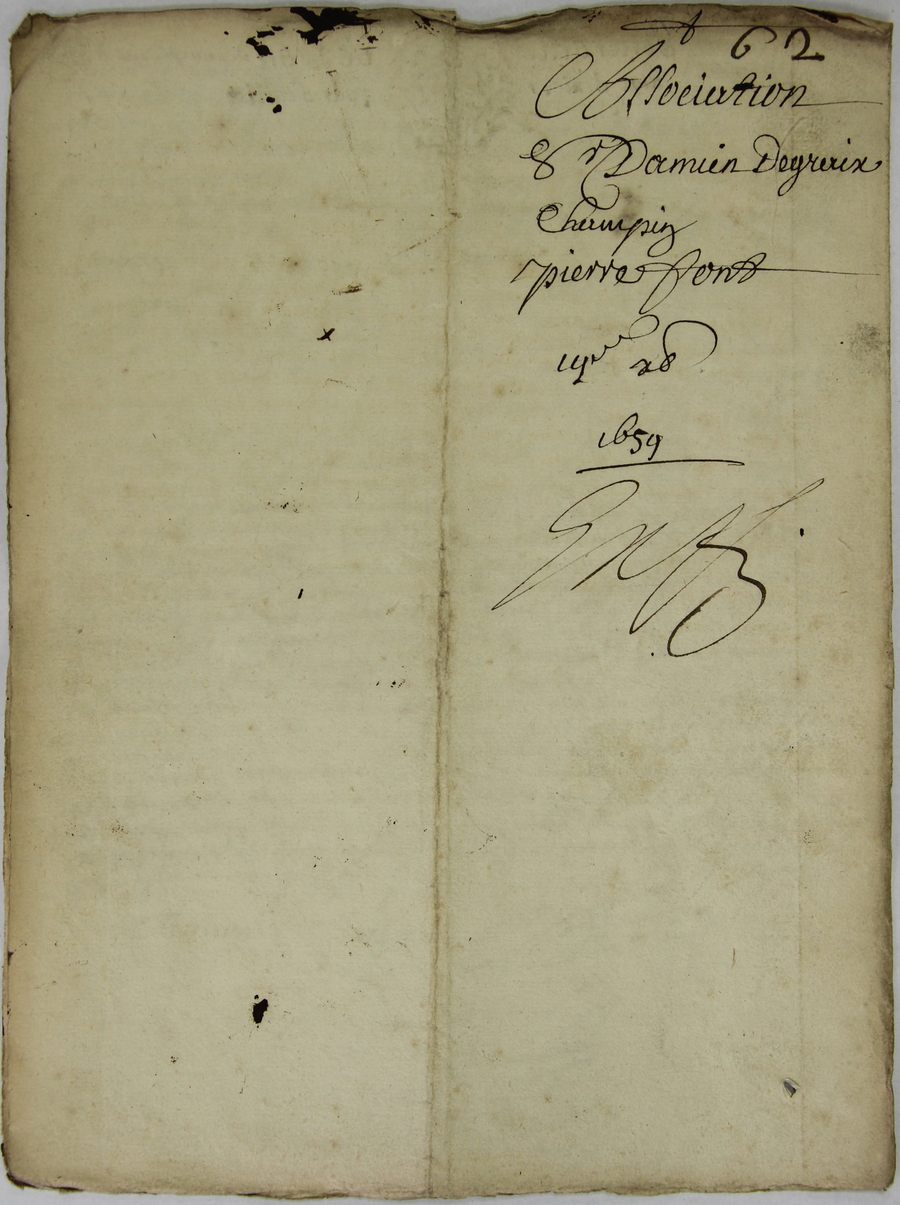 62
Association
Sr Damien Degraix
Champin
pierre font
28
1659